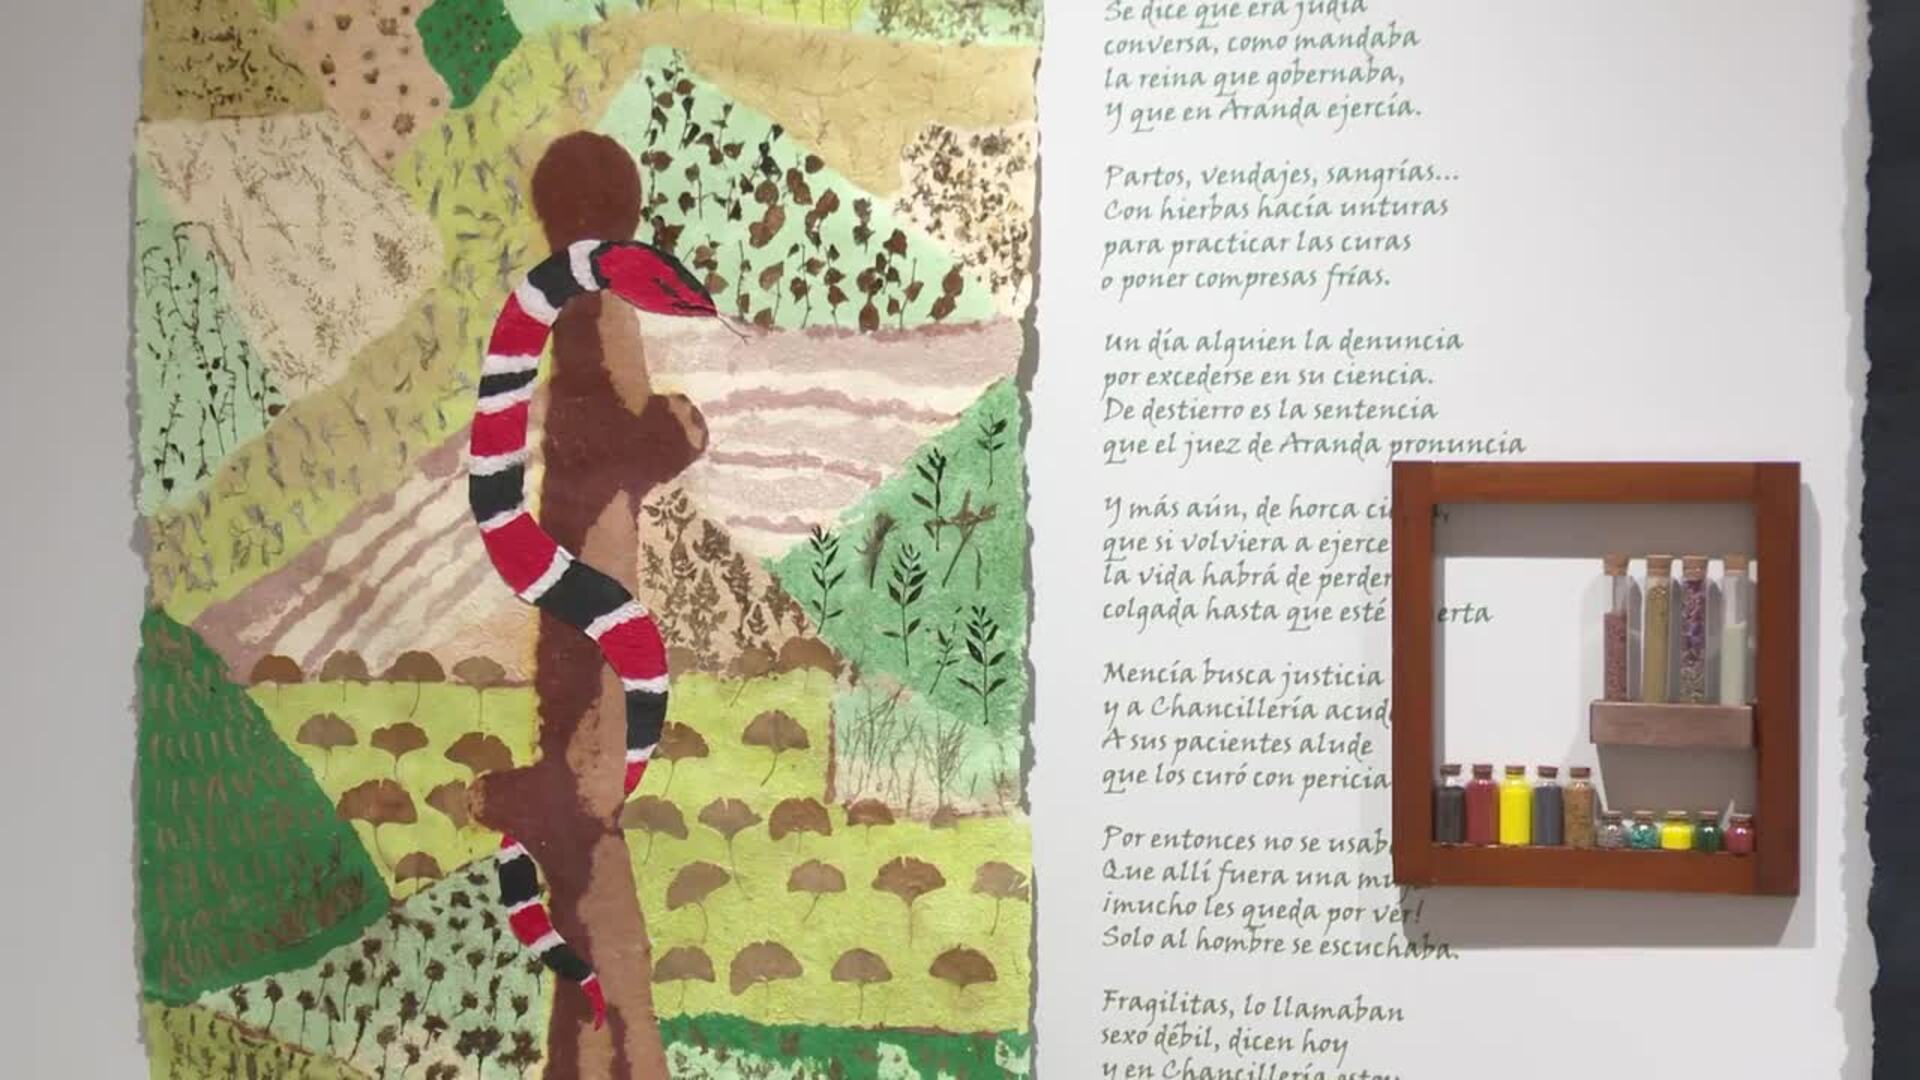 Se dice que era judía
conversa, como mandaba
la reina que gobernaba,
Y que en Aranda ejercía.
Partos, vendajes, sangrías...
Con hierbas hacía unturas
para practicar las curas
o poner compresas frías.
Un día alguien la denuncia
por excederse en su ciencia.
De destierro es la sentencia
que el juez de Aranda pronuncia
Y más aún, de horca
que si volviera a
la vida habrá de perder
colgada hasta que esté
Mencía busca justicia
y a Chancillería
A sus pacientes alude
que los curó con pericia
Por entonces no se
Que allí fuera una
¡mucho les queda por ver!
Solo al hombre se escuchaba.
Fragilitas, lo llamaban
sexo débil, dicen hoy
y en Chancillería estoy